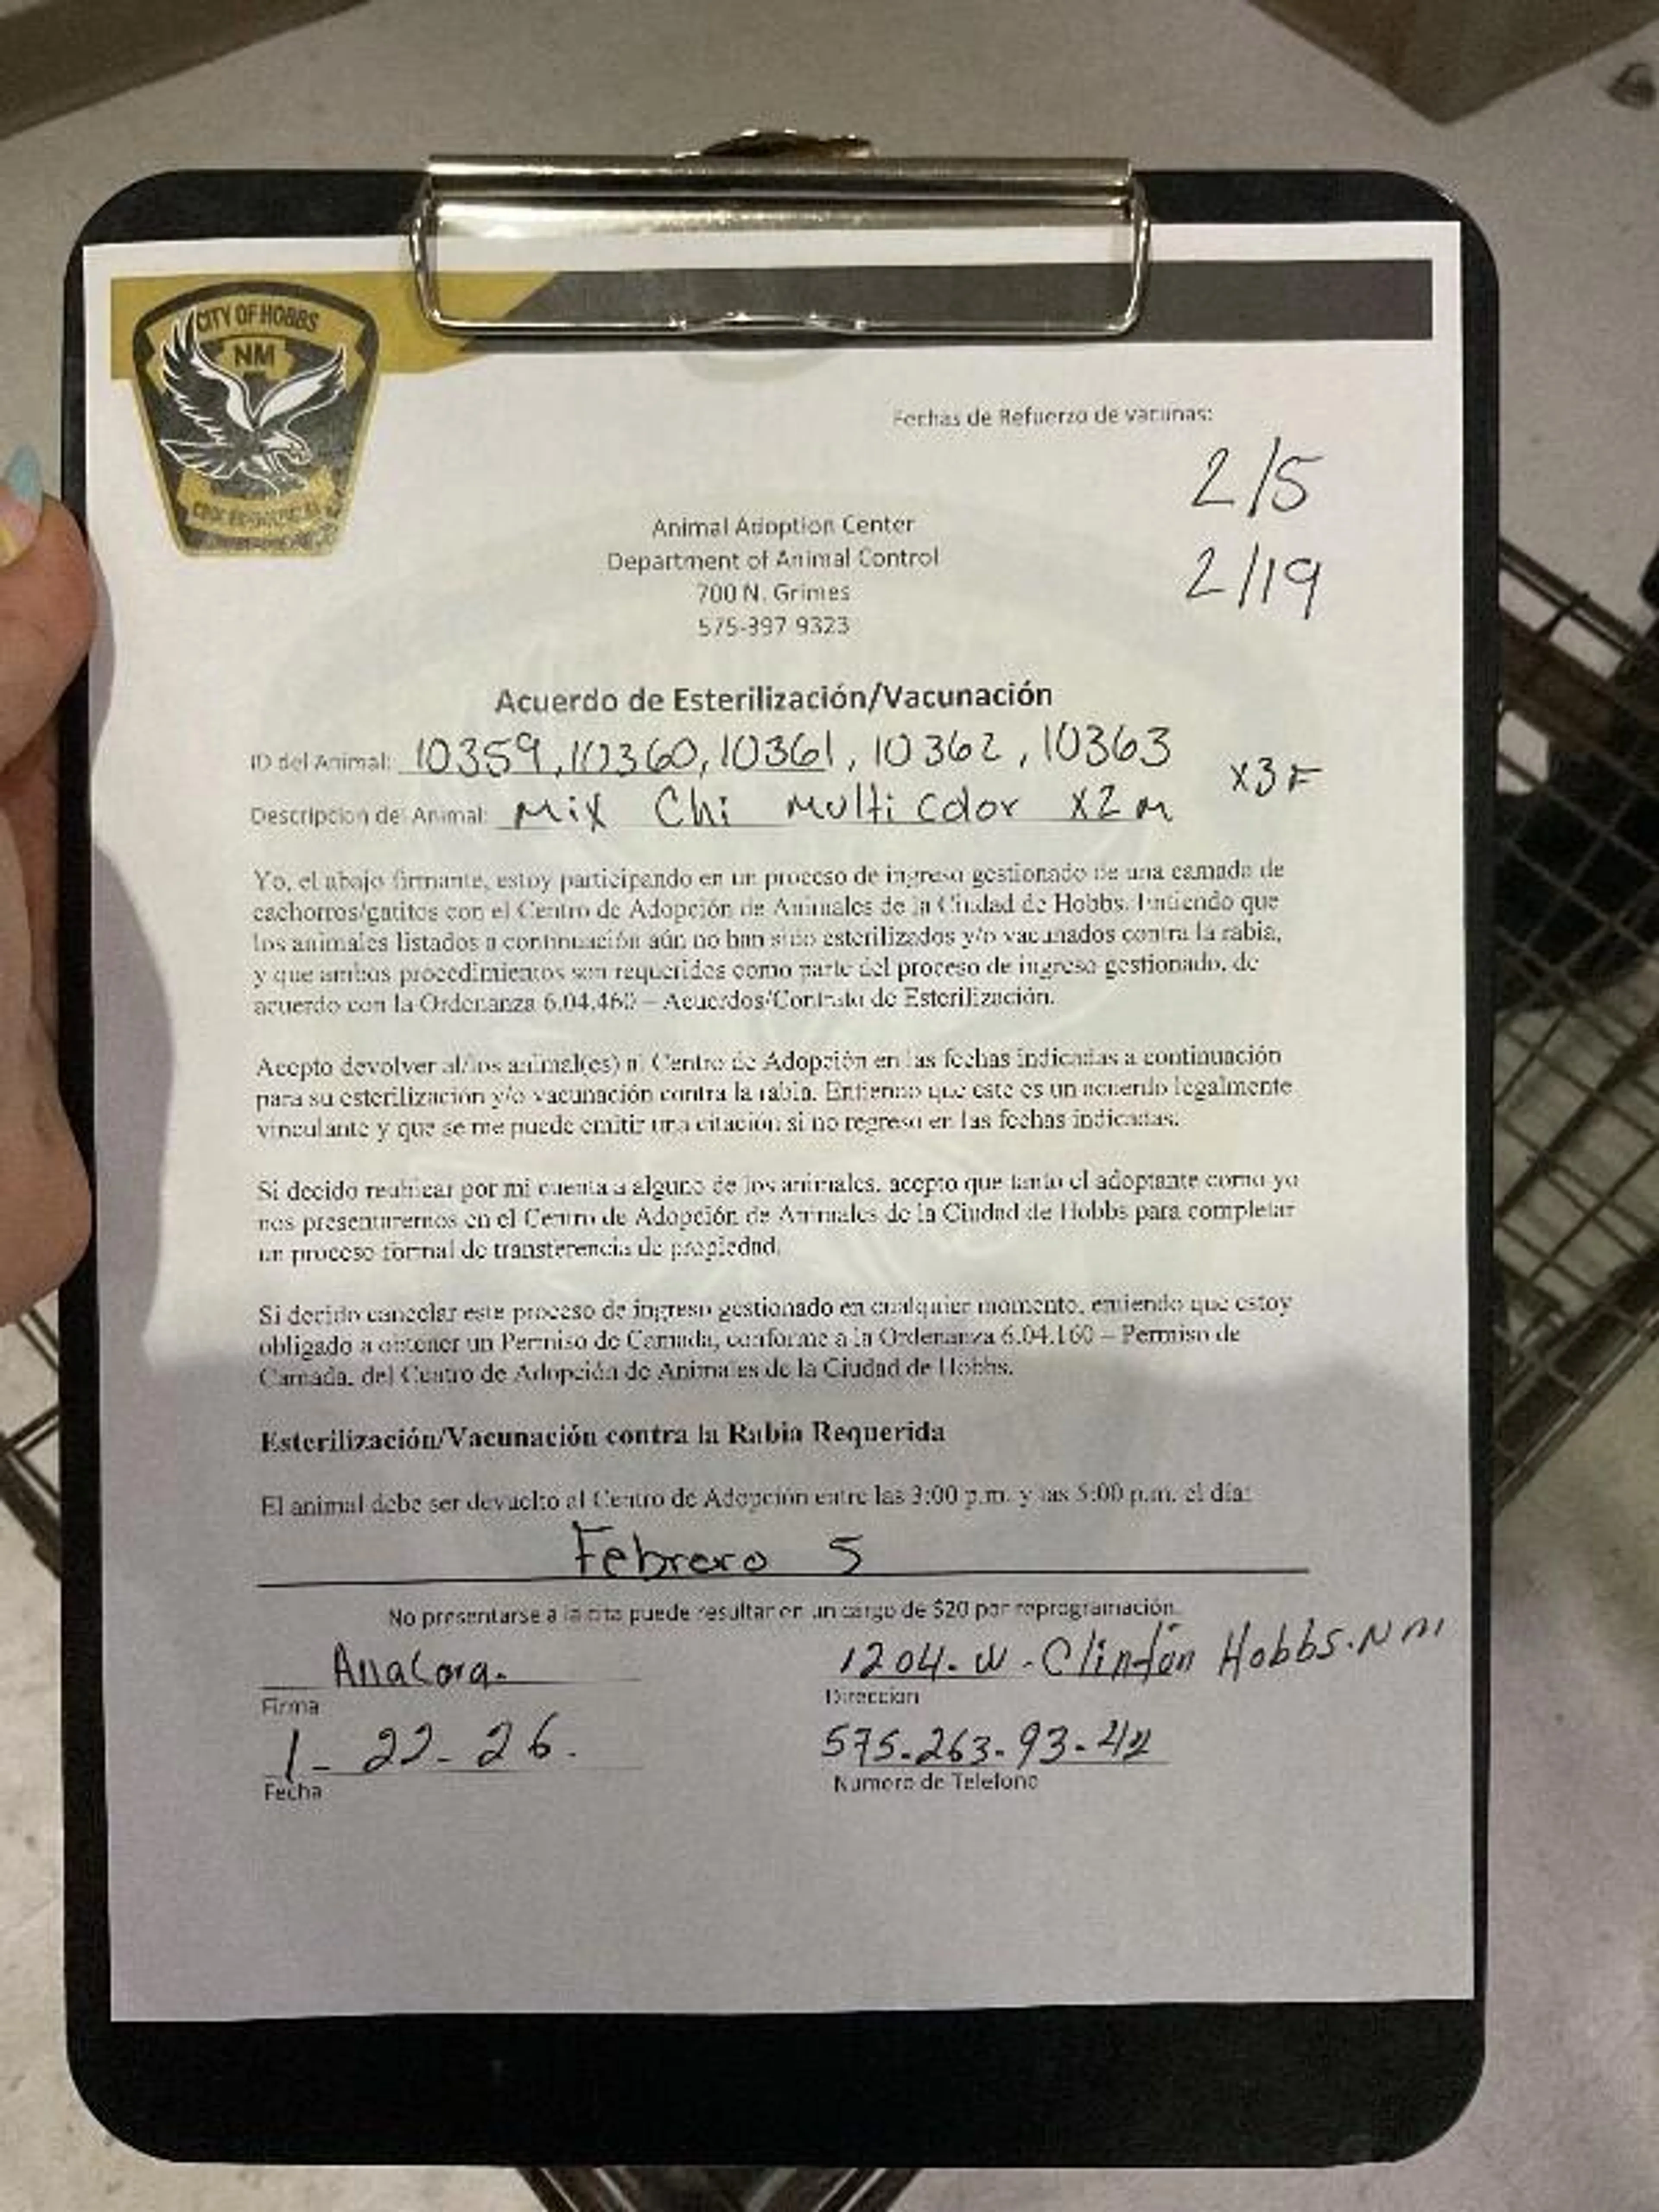 CITY OF HOBBS
NM
Fechas de Refuerzo de vacunas:
2/5
2/19
Animal Adoption Center
Department of Animal Control
700 N. Grimes
575-397 9323
Acuerdo de Esterilización/Vacunación
ID del Animal: 10359, 10360, 10361, 10362, 10363
x3 F
Descripcion del Animal: Mix Chi Multi color x2 M
Yo, el abajo firmante, estoy participando en un proceso de ingreso gestionado de una camada de
cachorros/gatitos con el Centro de Adopción de Animales de la Ciudad de Hobbs. Entiendo que
los animales listados a continuación aún no han sido esterilizados y/o vacunados contra la rabia,
y que ambos procedimientos son requeridos como parte del proceso de ingreso gestionado, de
acuerdo con la Ordenanza 6.04.460 – Acuerdos/Contrato de Esterilización.
Acepto devolver al/los animal(es) al Centro de Adopción en las fechas indicadas a continuación
para su esterilización y/o vacunación contra la rabia. Entiendo que este es un acuerdo legalmente
vinculante y que se me puede emitir una citación si no regreso en las fechas indicadas.
Si decido reubicar por mi cuenta a alguno de los animales, acepto que tanto el adoptante como yo
nos presentaremos en el Centro de Adopción de Animales de la Ciudad de Hobbs para completar
un proceso formal de transferencia de propiedad.
Si decido cancelar este proceso de ingreso gestionado en cualquier momento, entiendo que estoy
obligado a obtener un Permiso de Camada, conforme a la Ordenanza 6.04.160 – Permiso de
Camada, del Centro de Adopción de Animales de la Ciudad de Hobbs.
Esterilización/Vacunación contra la Rabia Requerida
El animal debe ser devuelto al Centro de Adopción entre las 3:00 p.m. y las 5:00 p.m. el día:
Febrero 5
No presentarse a la cita puede resultar en un cargo de $20 por reprogramación.
1204. W. Clinton Hobbs. NM
Direccion
Firma
1- 22- 26.
575-263-93-42
Fecha
Numero de Telefono